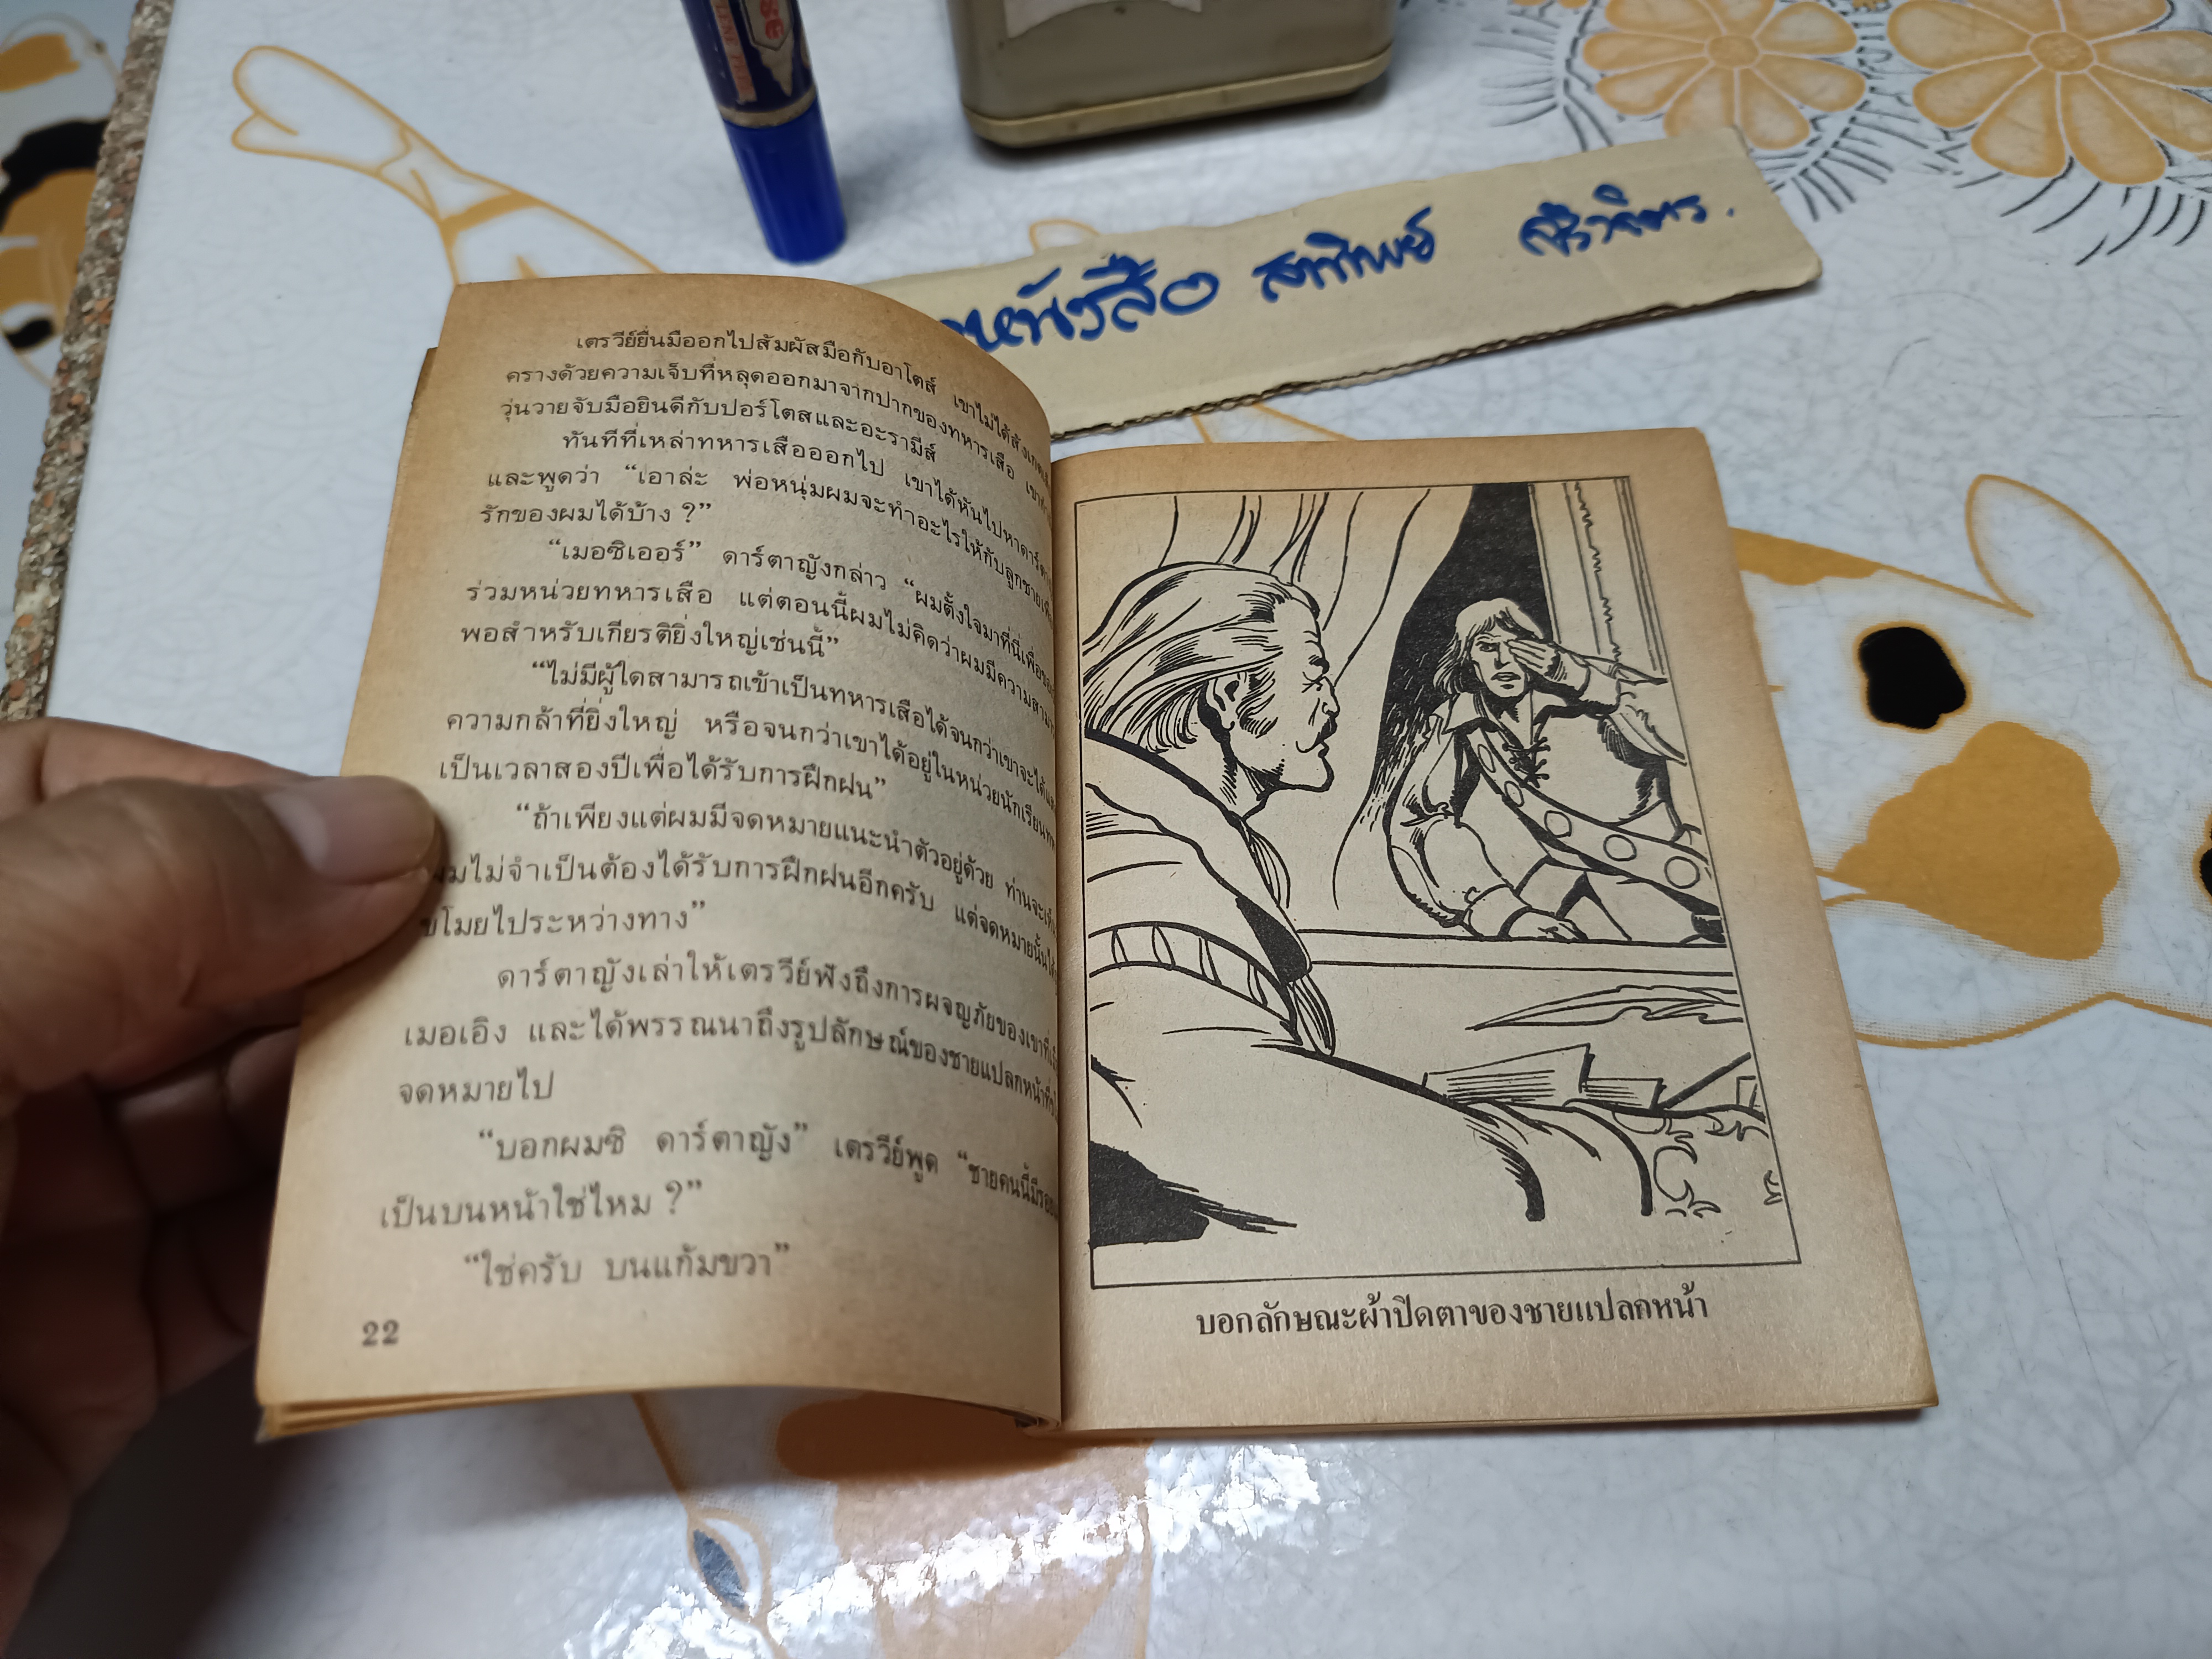 หนังสือ
เตรวีย์ยื่นมือออกไปสัมผัสมือกับอาโตส์ เขาไม่ได้สังเกต
ครางด้วยความเจ็บที่หลุดออกมาจากปากของทหารเสือ
วุ่นวายจับมือยินดีกับปอร์โตสและอะรามีส์
ทันทีที่เหล่าทหารเสือออกไป เขาได้หันไปหา
และพูดว่า “เอาล่ะ พ่อหนุ่มผมจะทำอะไรให้กับลูกชาย
รักของผมได้บ้าง ?”
“เมอซิเออร์” ดาร์ตาญังกล่าว “ผมตั้งใจมาที่นี่เพื่อ
ร่วมหน่วยทหารเสือ แต่ตอนนี้ผมไม่คิดว่าผมมีความ
พอสำหรับเกียรติยิ่งใหญ่เช่นนี้”
“ไม่มีผู้ใดสามารถเข้าเป็นทหารเสือได้จนกว่าเขาจะได้
ความกล้าที่ยิ่งใหญ่ หรือจนกว่าเขาได้อยู่ในหน่วยนักเรียน
เป็นเวลาสองปีเพื่อได้รับการฝึกฝน”
“ถ้าเพียงแต่ผมมีจดหมายแนะนำตัวอยู่ด้วย ท่านจะ
ผมไม่จำเป็นต้องได้รับการฝึกฝนอีกครับ แต่จดหมายนั้น
ขโมยไประหว่างทาง”
ดาร์ตาญังเล่าให้เตรวีย์ฟังถึงการผจญภัยของเขาที่
เมอเอิง และได้พรรณนาถึงรูปลักษณ์ของชายแปลกหน้าที่
จดหมายไป
“บอกผมซิ ดาร์ตาญัง” เตรวีย์พูด “ชายคนนี้มี
เป็นบนหน้าใช่ไหม ?”
“ใช่ครับ บนแก้มขวา”
22
บอกลักษณะผ้าปิดตาของชายแปลกหน้า